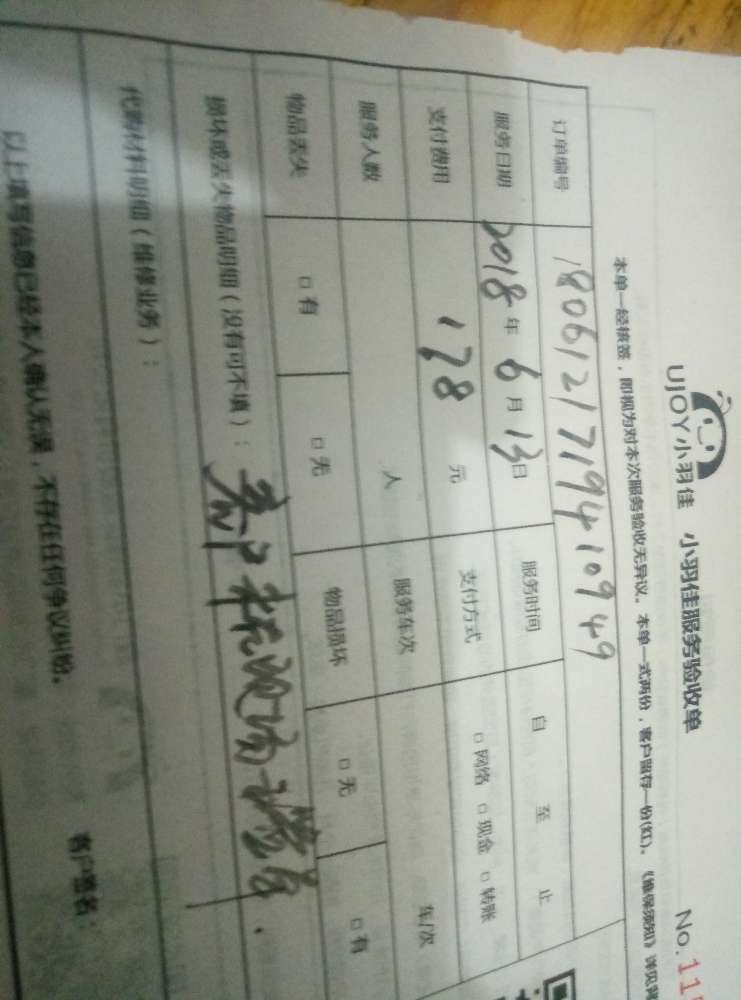 UJOY小羽佳 小羽佳服务验收单 No.11
本单一经核签，即视为对本次服务验收无异议。本单一式两份，客户留存一份(红)。《维保须知》详见背
订单编号 1806121719410949
服务日期 2018年6月13日 服务时间 自 至 止
支付费用 178元 支付方式 □网络 □现金 □转账
服务人数 人 服务车次 车/次
物品丢失 □有 □无 物品损坏 □无 □有
损坏或丢失物品明细（没有可不填）：客户不在现场
代购材料明细（维修业务）：
以上填写信息已经本人确认无误，不存在任何争议纠纷。
客户签名：